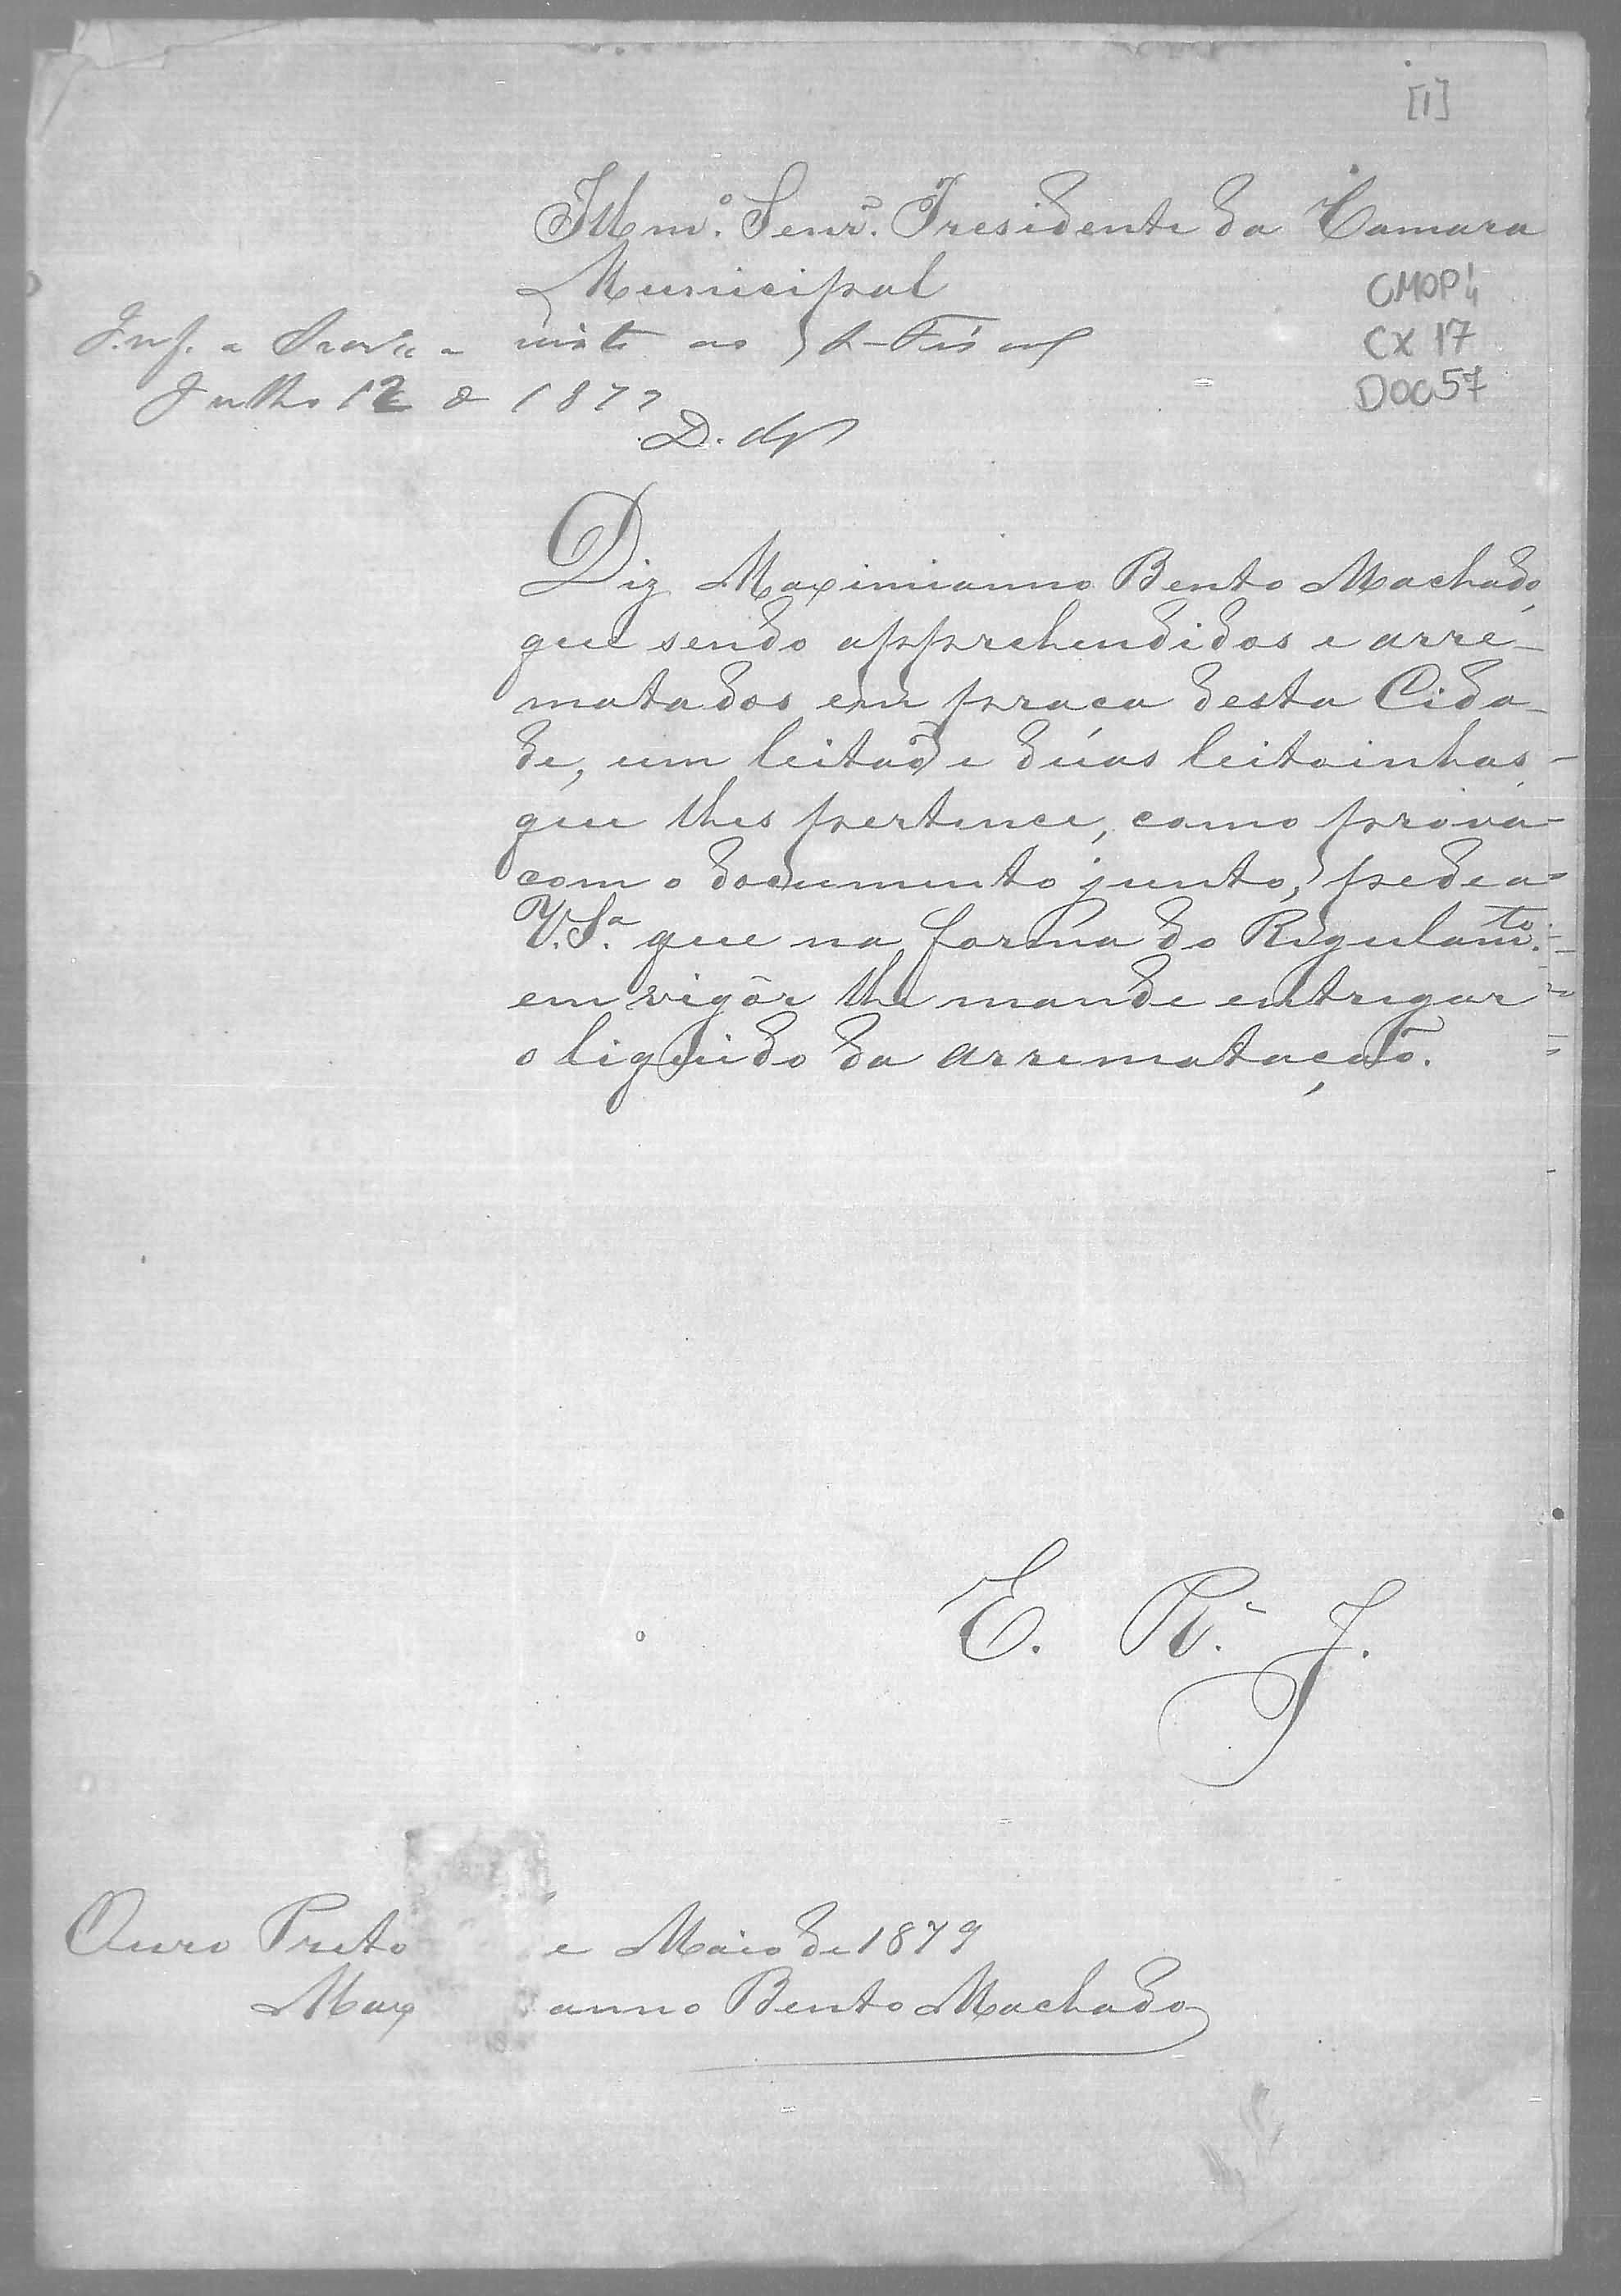 [1]
Illmº. Senrº. Presidente da Camara
Municipal
CMOP 4
CX 17
DOC 57
Inf. a
Julho 12 de 187
Diz Maximianno Bento Machado,
que sendo apprehendidos e arre-
matados em praca desta Cida-
de, um leitaõ e dúas leitoinhas
que lhes pertence, como prova
com o documento junto, pede a
V. Sª. que na forma do Regulamto.
em vigôr lhe mande entregar
o liquido da arremataçaõ.
E. R. J.
Ouro Preto e Maio de 1879
Max anno Bento Machado